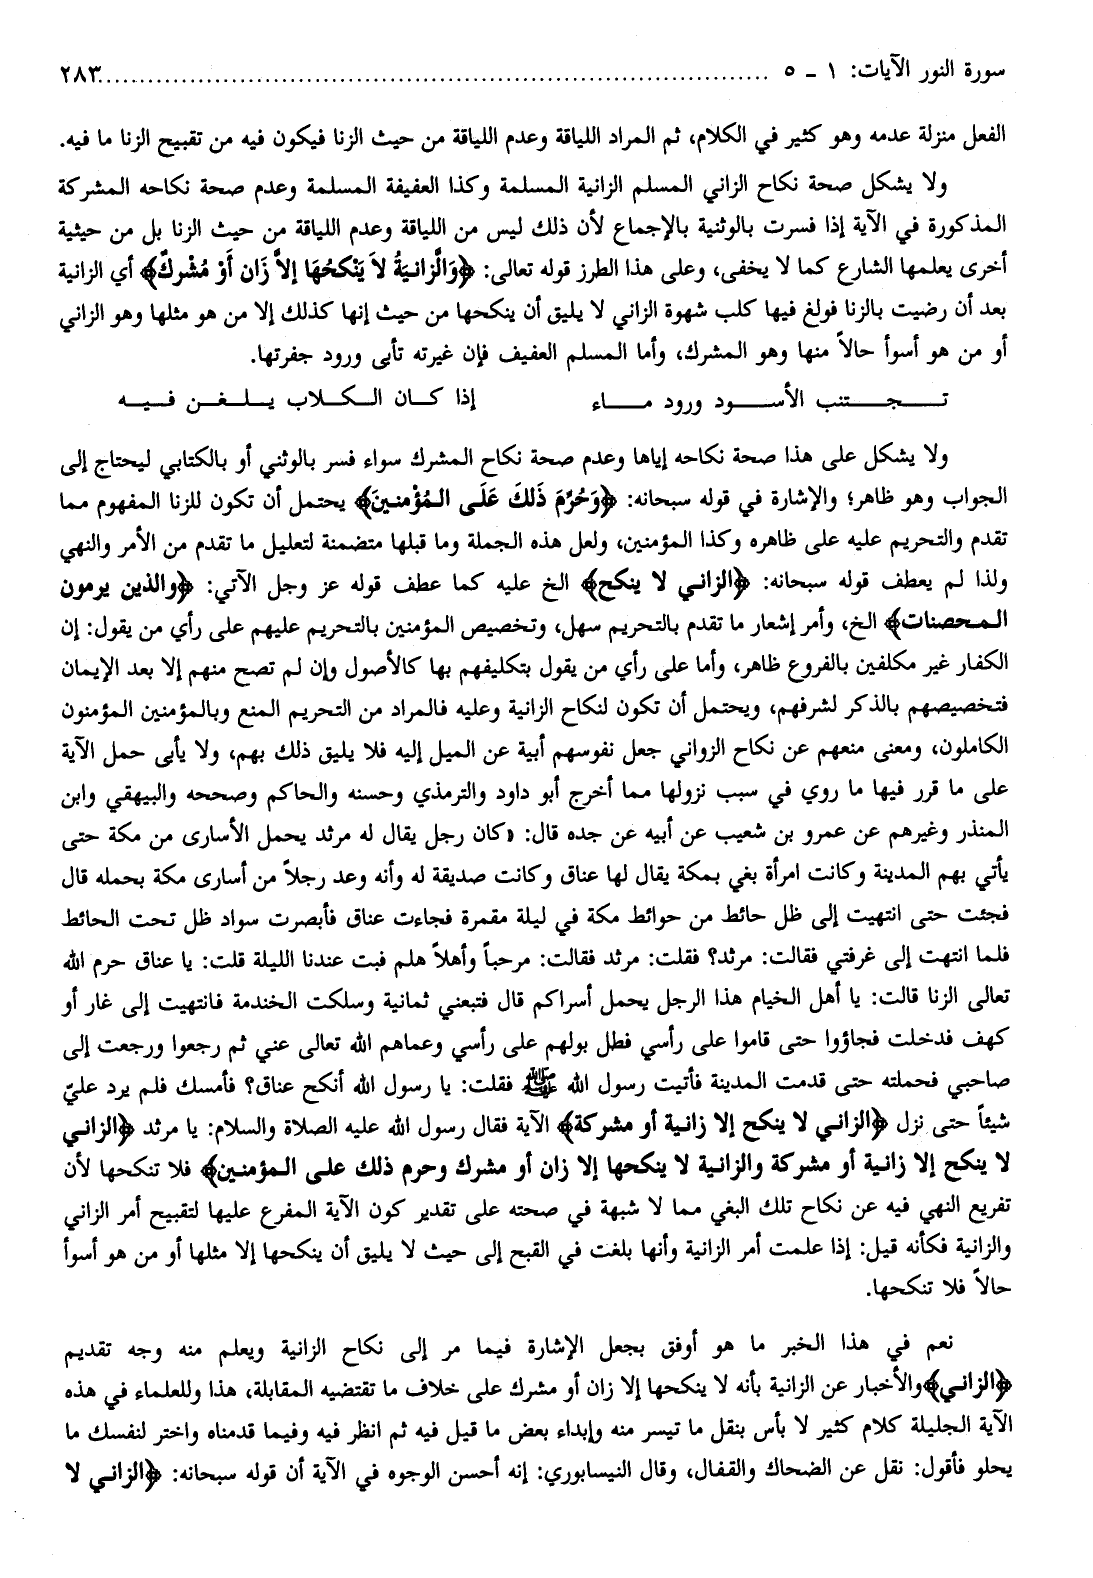 سورة النور الآيات: ١ - ٥ ........................................................................... ٢٨٣
الفعل منزلة عدمه وهو كثير في الكلام، ثم المراد اللياقة وعدم اللياقة من حيث الزنا فيكون فيه من تقبيح الزنا ما فيه.
ولا يشكل صحة نكاح الزاني المسلم الزانية المسلمة وكذا العفيفة المسلمة وعدم صحة نكاحه المشركة
المذكورة في الآية إذا فسرت بالوثنية بالإجماع لأن ذلك ليس من اللياقة وعدم اللياقة من حيث الزنا بل من حيثية
أخرى يعلمها الشارع كما لا يخفى، وعلى هذا الطرز قوله تعالى: ﴿وَالَّزانيَةُ لاَ يَنْكحُهَا إلاَّ زَان أَوْ مُشْركٌ﴾ أي الزانية
بعد أن رضيت بالزنا فولغ فيها كلب شهوة الزاني لا يليق أن ينكحها من حيث إنها كذلك إلا من هو مثلها وهو الزاني
أو من هو أسوأ حالاً منها وهو المشرك، وأما المسلم العفيف فإن غيرته تأبى ورود جفرتها.
تـجـتنب الأسـود ورود مـاء إذا كـان الـكلاب يـلـغـن فـيـه
ولا يشكل على هذا صحة نكاحه إياها وعدم صحة نكاح المشرك سواء فسر بالوثني أو بالكتابي ليحتاج إلى
الجواب وهو ظاهر؛ والإشارة في قوله سبحانه: ﴿وَحُرّمَ ذَلكَ عَلَى الـمُؤْمنـينَ﴾ يحتمل أن تكون للزنا المفهوم مما
تقدم والتحريم عليه على ظاهره وكذا المؤمنين، ولعل هذه الجملة وما قبلها متضمنة لتعليل ما تقدم من الأمر والنهي
ولذا لم يعطف قوله سبحانه: ﴿الزاني لا ينكح﴾ الخ عليه كما عطف قوله عز وجل الآتي: ﴿والذين يرمون
الـمحصنات﴾ الخ، وأمر إشعار ما تقدم بالتحريم سهل، وتخصيص المؤمنين بالتحريم عليهم على رأي من يقول: إن
الكفار غير مكلفين بالفروع ظاهر، وأما على رأي من يقول بتكليفهم بها كالأصول وإن لم تصح منهم إلا بعد الإيمان
فتخصيصهم بالذكر لشرفهم، ويحتمل أن تكون لنكاح الزانية وعليه فالمراد من التحريم المنع وبالمؤمنين المؤمنون
الكاملون، ومعنى منعهم عن نكاح الزواني جعل نفوسهم أبية عن الميل إليه فلا يليق ذلك بهم، ولا يأبى حمل الآية
على ما قرر فيها ما روي في سبب نزولها مما أخرج أبو داود والترمذي وحسنه والحاكم وصححه والبيهقي وابن
المنذر وغيرهم عن عمرو بن شعيب عن أبيه عن جده قال: «كان رجل يقال له مرثد يحمل الأسارى من مكة حتى
يأتي بهم المدينة وكانت امرأة بغي بمكة يقال لها عناق وكانت صديقة له وأنه وعد رجلاً من أسارى مكة بحمله قال
فجئت حتى انتهيت إلى ظل حائط من حوائط مكة في ليلة مقمرة فجاءت عناق فأبصرت سواد ظل تحت الحائط
فلما انتهت إلى غرفتي فقالت: مرثد؟ فقلت: مرثد فقالت: مرحباً وأهلاً هلم فبت عندنا الليلة قلت: يا عناق حرم الله
تعالى الزنا قالت: يا أهل الخيام هذا الرجل يحمل أسراكم قال فتبعني ثمانية وسلكت الخندمة فانتهيت إلى غار أو
كهف فدخلت فجاؤوا حتى قاموا على رأسي فطل بولهم على رأسي وعماهم الله تعالى عني ثم رجعوا ورجعت إلى
صاحبي فحملته حتى قدمت المدينة فأتيت رسول الله ﷺ فقلت: يا رسول الله أنكح عناق؟ فأمسك فلم يرد عليّ
شيئاً حتى نزل ﴿الزاني لا ينكح إلا زانية أو مشركة﴾ الآية فقال رسول الله عليه الصلاة والسلام: يا مرثد ﴿الزاني
لا ينكح إلا زانية أو مشركة والزانية لا ينكحها إلا زان أو مشرك وحرم ذلك على الـمؤمنين﴾ فلا تنكحها لأن
تفريع النهي فيه عن نكاح تلك البغي مما لا شبهة في صحته على تقدير كون الآية المفرع عليها لتقبيح أمر الزاني
والزانية فكأنه قيل: إذا علمت أمر الزانية وأنها بلغت في القبح إلى حيث لا يليق أن ينكحها إلا مثلها أو من هو أسوأ
حالاً فلا تنكحها.
نعم في هذا الخبر ما هو أوفق بجعل الإشارة فيما مر إلى نكاح الزانية ويعلم منه وجه تقديم
﴿الزاني﴾ والأخبار عن الزانية بأنه لا ينكحها إلا زان أو مشرك على خلاف ما تقتضيه المقابلة، هذا وللعلماء في هذه
الآية الجليلة كلام كثير لا بأس بنقل ما تيسر منه وإبداء بعض ما قيل فيه ثم انظر فيه وفيما قدمناه واختر لنفسك ما
يحلو فأقول: نقل عن الضحاك والقفال، وقال النيسابوري: إنه أحسن الوجوه في الآية أن قوله سبحانه: ﴿الزاني لا